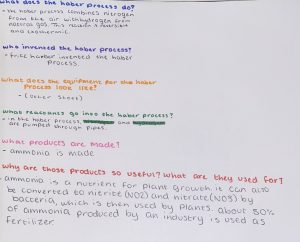 what does the haber process do?
- the haber process combines nitrogen
from the air with hydrogen from
natural gas. This reaction is reversible
and exothermic.
who invented the haber process?
- fritz harber invented the haber
process.
what does the equipment for the haber
Process look like?
- (other sheet)
what reactants go into the haber process?
- in the haber process, and
are pumped through pipes.
what products are made?
- ammonia is made
why are those products so useful? what are they used for?
- ammonia is a nutrient for plant growth. it can also
be converted to nitrite (NO2) and nitrate (NO3) by
bacteria, which is then used by plants. about 80%
of ammonia produced by an industry is used as
fertilizer.